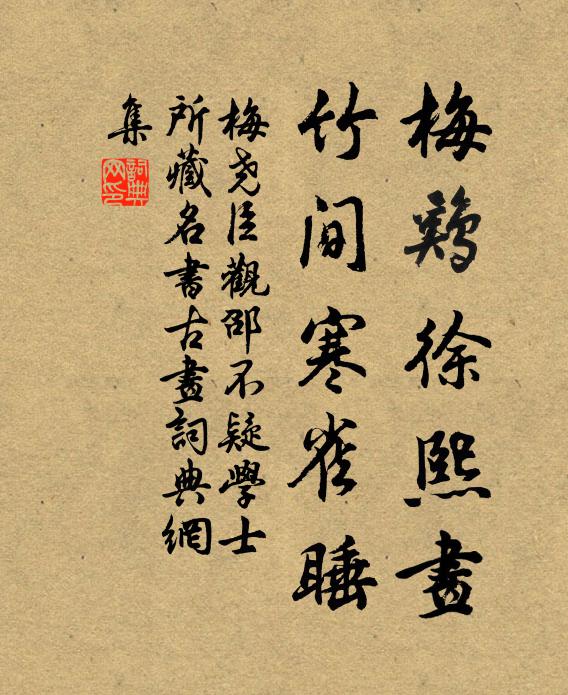 梅鷄徐熙畫
竹間寒雀睡
梅尧臣觀邵不疑學士
所藏名書古畫詞典網
集
詞典
网印